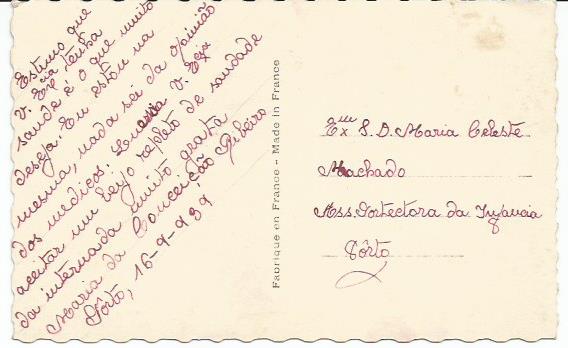 Estimo que
V. Ex.cia tenha
saude é o que muito
deseja. Eu estou na
mesma, nada sei da opinião
dos medicos. V. Ex.cia
aceitar um beijo repleto de saudade
da internada muito grata
Maria da Conceição Ribeiro
Porto, 16-9-939
Fabriqué en France - Made in France
Ex.ma S. D. Maria Celeste
Machado
Ass Portectora da Infancia
Pôrto